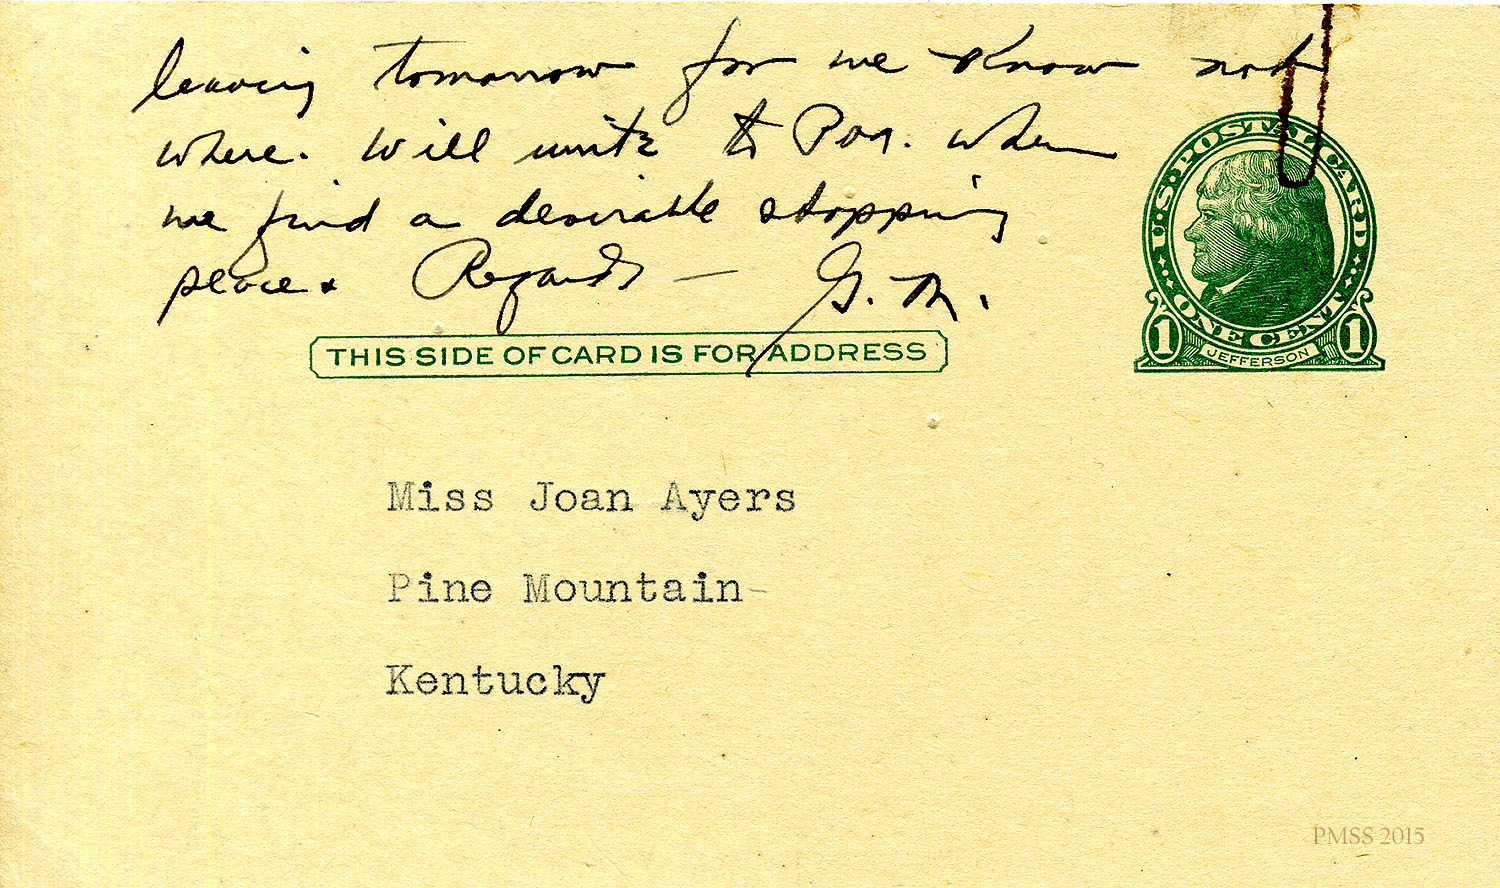 leaving tomorrow for we know not
where. Will write to Pon. when
we find a desirable stopping
place. Regards — G. M.
THIS SIDE OF CARD IS FOR ADDRESS
U.S. POSTAL CARD
ONE CENT
1 JEFFERSON 1
Miss Joan Ayers
Pine Mountain-
Kentucky
PMSS 2015